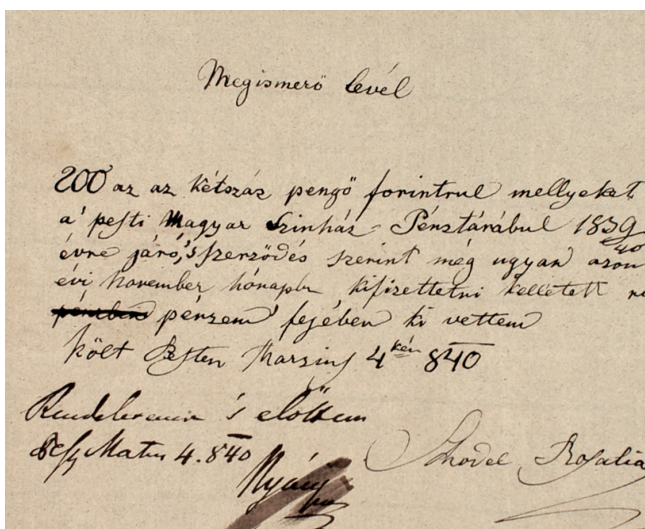 Megismerő levél
200 az az kétszáz pengő forintrul mellyeket
a' pesti Magyar Szinház Pénztárábul 1839/40
évre járó, 's szerződés szerint még ugyan azon
évi November hónapba kifizettetni kelletett
pénzem' fejében ki vettem
költ Pesten Marzius 4kén 840
Rendelesemre 's előttem
Pest Martius 4. 840
Nyáry
Schodel Rosalia